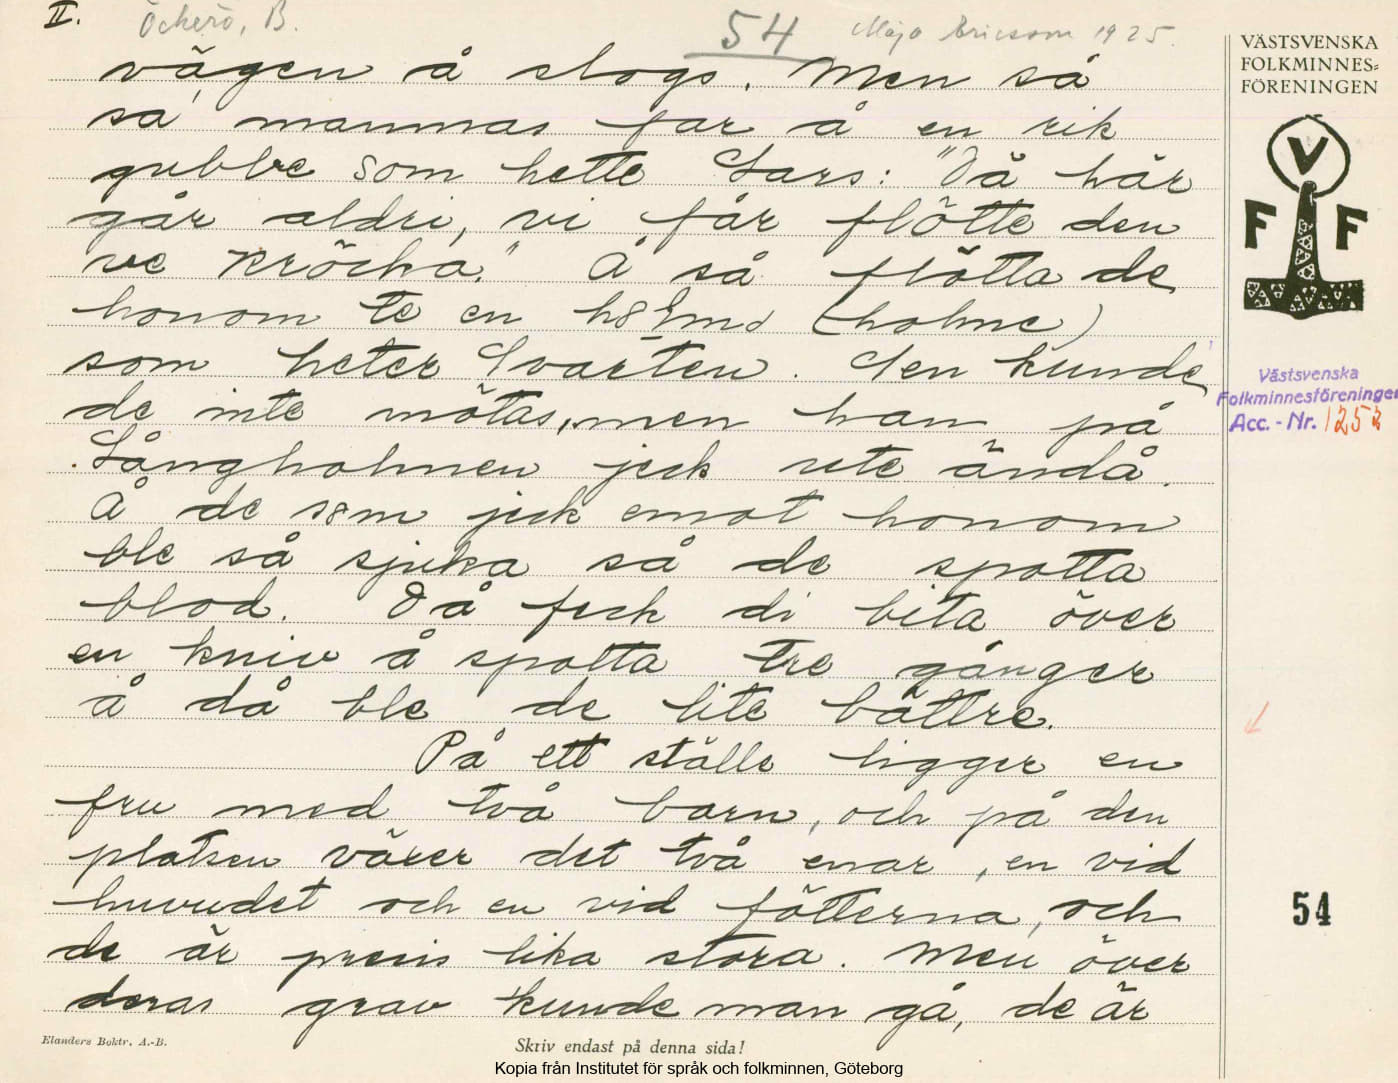 II. Öckerö, B. 54 Maja Ericsson 1925.
vägen å slogs. Men så
sa mammas far å en rik
gubbe som hette Lars: "Då här
går aldri, vi får flötte den
ve kröcka." Å så flötta de
honom te en (holme)
som heter Svarten. Den kunde
de inte mötas, men han på
Långholmen jick ute ändå.
Å de som jick emot honom
ble så sjuka så de spotta
blod. Då fick di bita över
en kniv å spotta tre gånger
å då ble de lite bättre.
På ett ställe ligger en
fru med två barn, och på den
platsen växer det två enar, en vid
huvudet och en vid fötterna, och
de är precis lika stora. Men över
deras grav kunde man gå, de är
Elanders Boktr. A.-B.
Skriv endast på denna sida!
VÄSTSVENSKA
FOLKMINNES=
FÖRENINGEN
V
F F
Västsvenska
Folkminnesföreningen
Acc. - Nr. 1252
54
Kopia från Institutet för språk och folkminnen, Göteborg